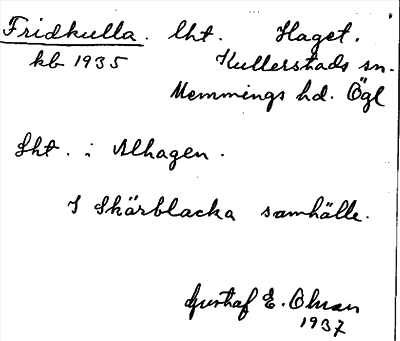 Fridkulla. lht. Haget.
kb 1935 Kullerstads sn.
Memmings hd. Ögl
Lht. i Alhagen.
I Skärblacka samhälle.
Gustaf E. Olman
1937